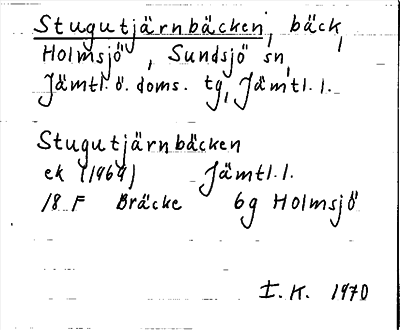 Stugutjärnbäcken, bäck,
Holmsjö, Sundsjö sn,
Jämtl. ö. doms. tg, Jämtl. l.
Stugutjärnbäcken
ek (1969) Jämtl. l.
18 F Bräcke 6g Holmsjö
I. K. 1970